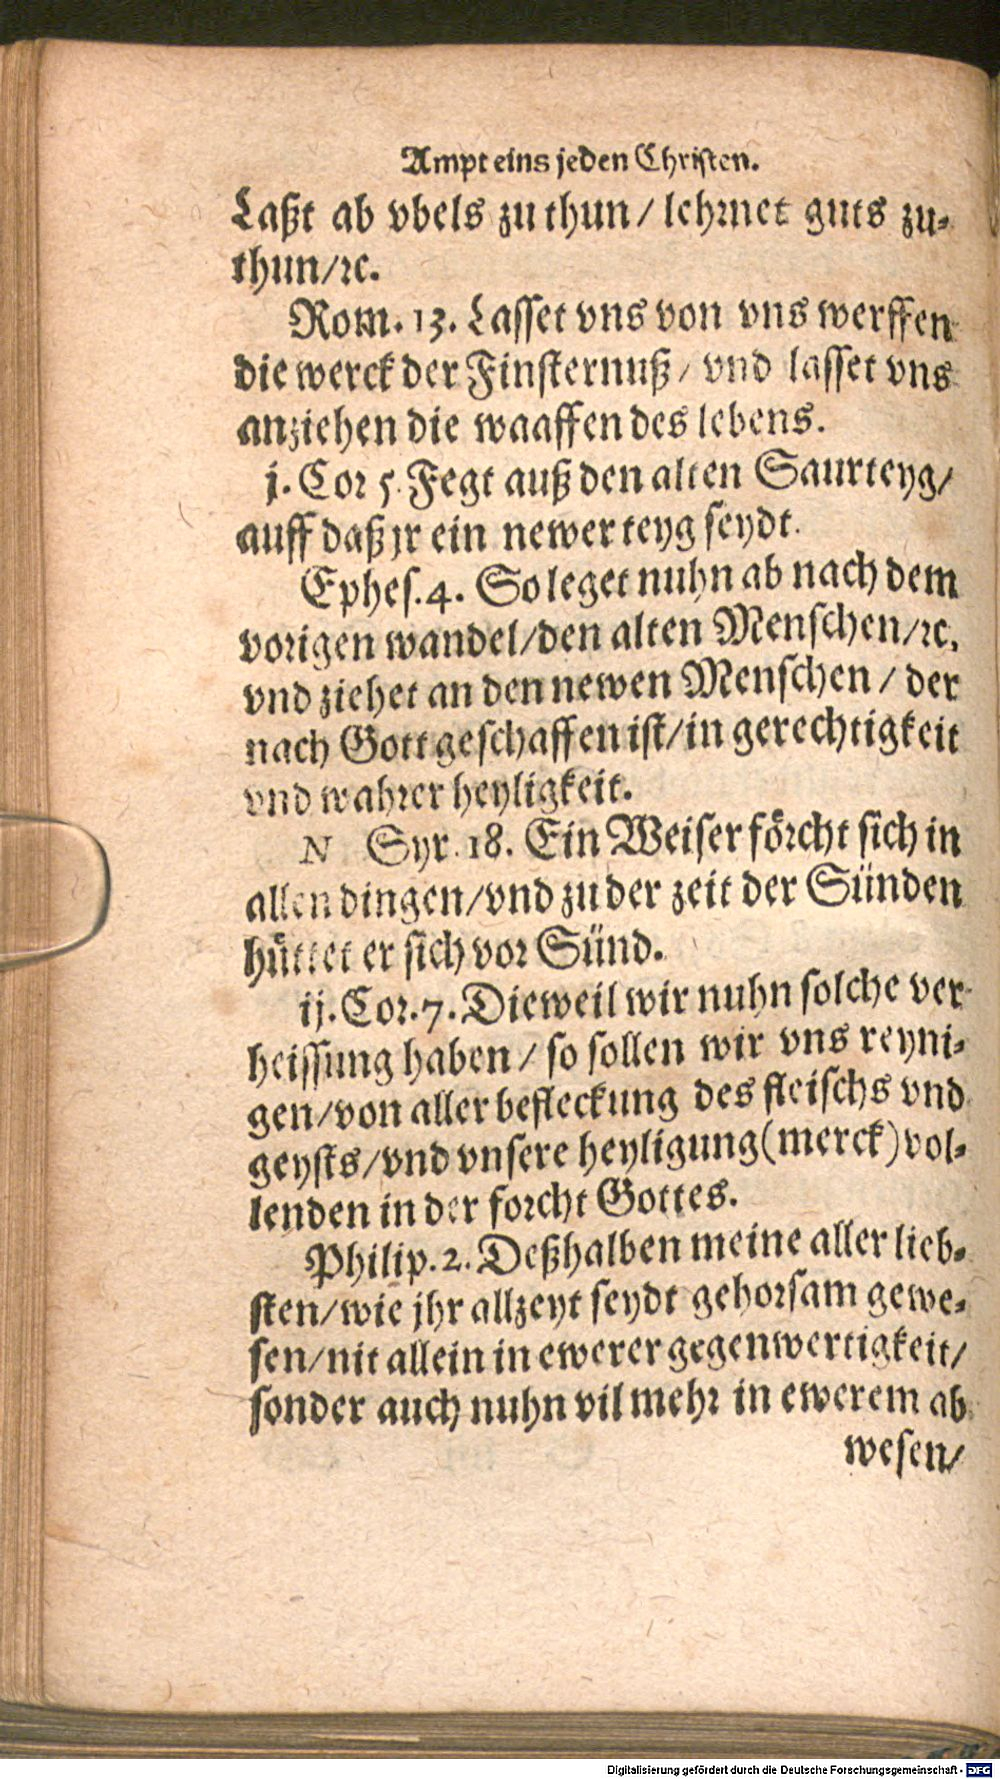 Ampt eins jeden Christen.
Laßt ab vbels zu thun / lehrnet guts zu⸗
thun / ꝛc.
Rom. 13. Lasset vns von vns werffen
die werck der Finsternuß / vnd lasset vns
anziehen die waaffen des lebens.
j. Cor 5. Fegt auß den alten Saurteyg /
auff daß jr ein newer teyg seydt.
Ephes. 4. So leget nuhn ab nach dem
vorigen wandel / den alten Menschen / ꝛc.
vnd ziehet an den newen Menschen / der
nach Gott geschaffen ist / in gerechtigkeit
vnd wahrer heyligkeit.
N Syr. 18. Ein Weiser förcht sich in
allen dingen / vnd zu der zeit der Sünden
hüttet er sich vor Sünd.
ij. Cor. 7. Dieweil wir nuhn solche ver
heissung haben / so sollen wir vns reyni⸗
gen / von aller befleckung des fleischs vnd
geysts / vnd vnsere heyligung (merck) vol⸗
lenden in der forcht Gottes.
Philip. 2. Deßhalben meine aller lieb⸗
sten / wie jhr allzeyt seydt gehorsam gewe⸗
sen / nit allein in ewerer gegenwertigkeit /
sonder auch nuhn vil mehr in ewerem ab
wesen /
Digitalisierung gefördert durch die Deutsche Forschungsgemeinschaft - DFG